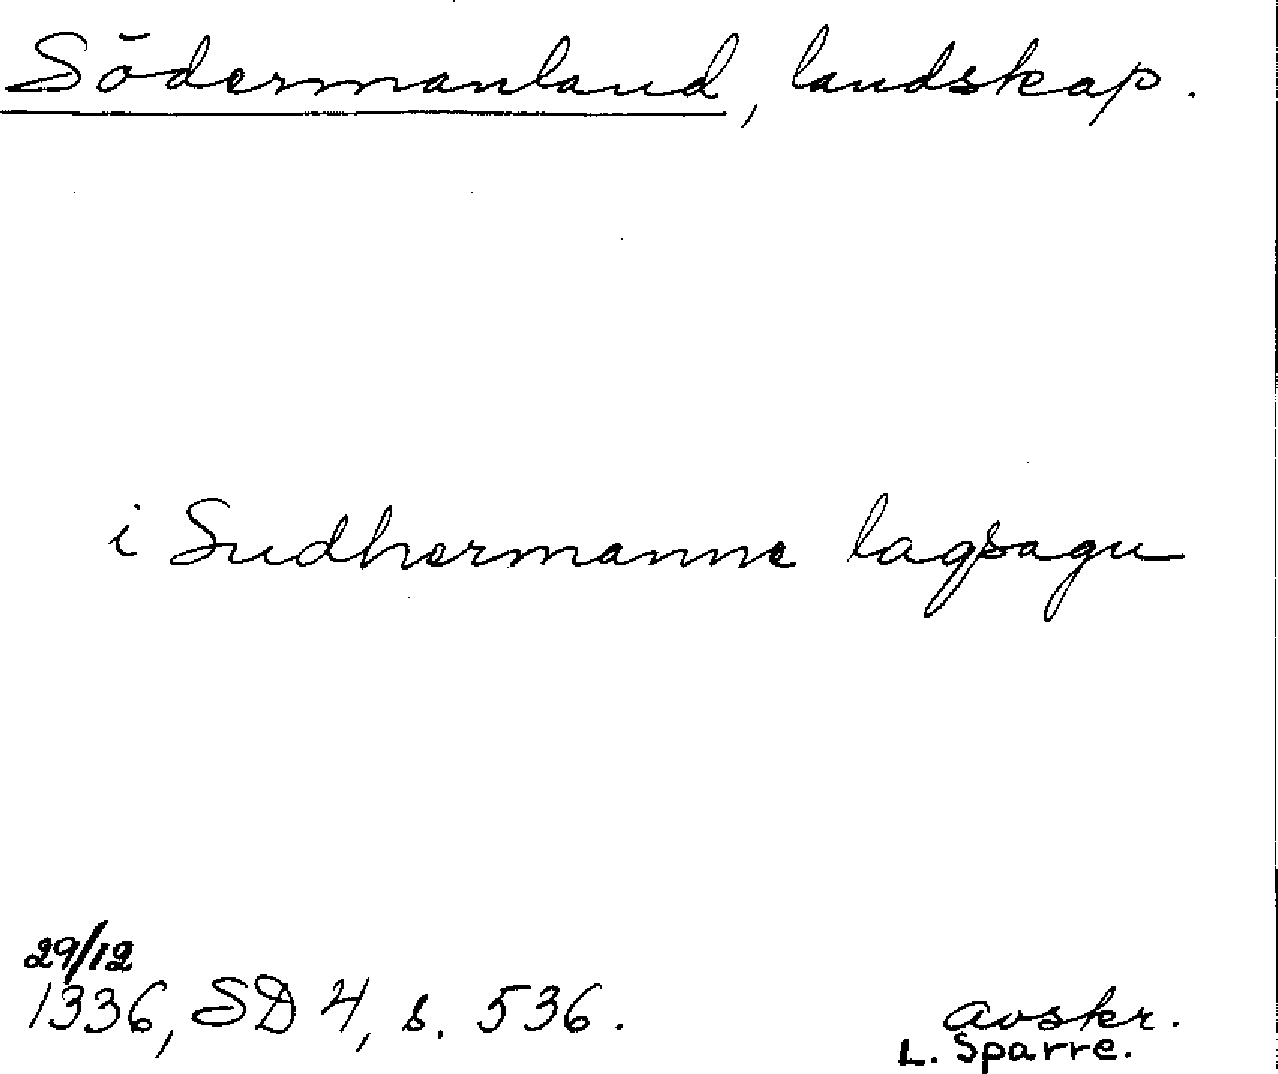 Södermanland, landskap.
i Sudhermanne lagsagu
29/12
1336, SD 4, s. 536.
avskr.
L. Sparre.